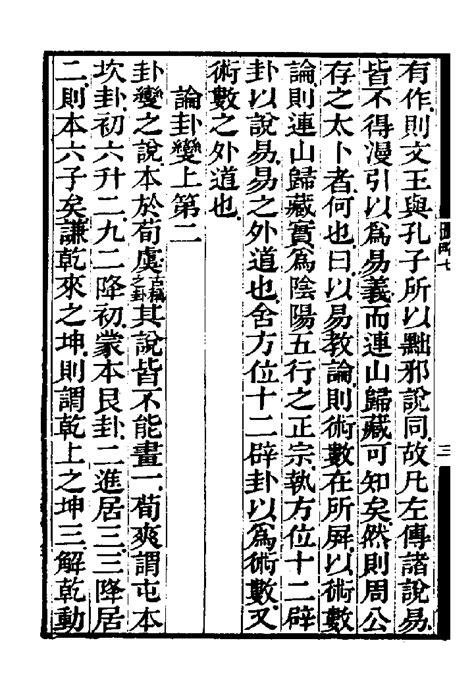 有作則文王與孔子所以黜邪說同故凡左傳諸說易
皆不得漫引以爲易義而連山歸藏可知矣然則周公
存之太卜者何也曰以易教論則術數在所屏以術數
論則連山歸藏實爲陰陽五行之正宗執方位十二辟
卦以說易易之外道也舍方位十二辟卦以爲術數又
術數之外道也
論卦變上第二
卦變之說本於荀虞古稱之卦其說皆不能畫一荀爽謂屯本
坎卦初六升二九二降初蒙本艮卦二進居三三降居
二則本六子矣謙乾來之坤則謂乾上之坤三解乾動
圖略七
三